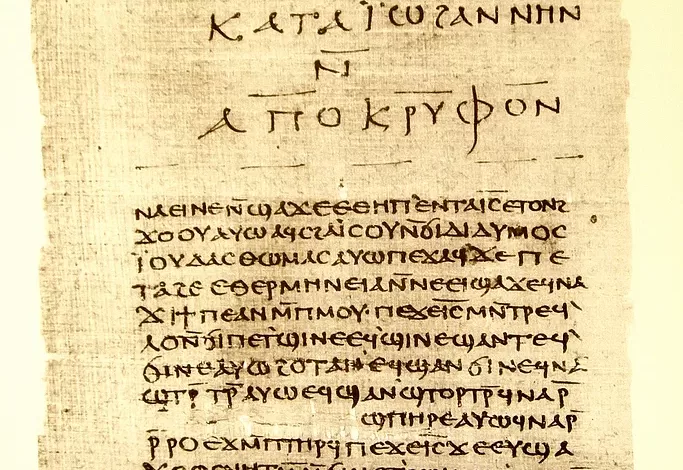 ⲕⲁⲧⲁ ⲓ̈ⲱϩⲁⲛⲛⲏⲛ
ⲛ̅
ⲁⲡⲟⲕⲣⲩⲫⲟⲛ
ⲛⲁⲉⲓⲛⲉⲛ̅ϣⲁϫⲉⲉⲑⲏⲡ ⲉⲛⲧⲁⲓ̅ⲥ̅ⲉⲧⲟⲛϩ
ϫⲟⲟⲩⲁⲩⲱⲁϥⲥϩⲁⲓ̈ⲥⲟⲩⲛ̅ϭⲓⲇⲓⲇⲩⲙⲟⲥ
ⲓ̈ⲟⲩⲇⲁⲥⲑⲱⲙⲁⲥⲁⲩⲱⲡⲉϫⲁϥϫⲉⲡⲉ
ⲧⲁϩⲉⲉⲑⲉⲣⲙⲏⲛⲉⲓⲁⲛ̅ⲛⲉⲉⲓϣⲁϫⲉϥⲛⲁ
ϫⲓϯⲡⲉⲁⲛⲙ̅ⲡⲙⲟⲩ·ⲡⲉϫⲉⲓ̅ⲥ̅ⲙⲛ̅ⲧⲣⲉϥ`
ⲗⲟⲛ̅ϭⲓⲡⲉⲧϣⲓⲛⲉⲉϥϣⲓⲛⲉϣⲁⲛⲧⲉϥ`
ϭⲓⲛⲉⲁⲩⲱϩⲟⲧⲁⲛⲉϥϣⲁⲛϭⲓⲛⲉϥⲛⲁ
ϣⲧⲣ̅ⲧⲣ̅ⲁⲩⲱⲉϥϣⲁⲛϣⲧⲟⲣⲧⲣ̅ϥⲛⲁⲣ̅
ϣⲡⲏⲣⲉⲁⲩⲱϥⲛⲁⲣ̅
ⲣ̅ⲣⲟⲉϫⲙ̅ⲡⲧⲏⲣϥⲡⲉϫⲉⲓ̅ⲥ̅ϫⲉⲉⲩϣⲁ